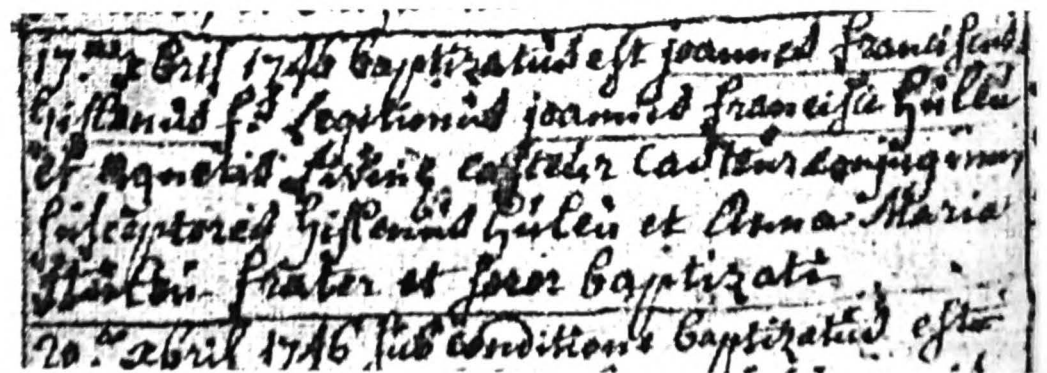 17.ma abril 1746 baptizatus est joannes franciscus
hislenus f.s Legitimus joannis francisci hulleu
et Agnetis casteur conjugum
susceptores hislenus huleu et Anna Maria
frater et soror baptizati
20.ma abril 1746 sub conditione baptizatus est